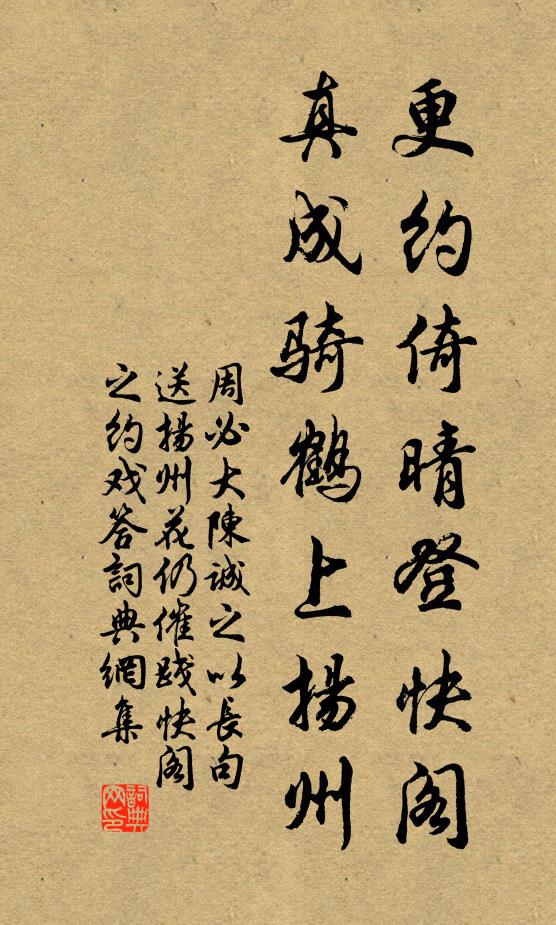 更约倚晴登快阁
真成骑鹤上揚州
周必大陳诚之以長句
送揚州花仍催践快阁
之约戏答詞典網集
詞典
网印